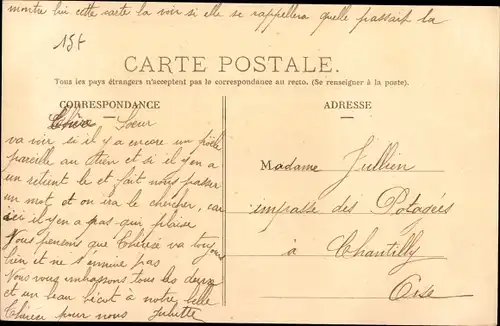 montre lui cette carte la voir si elle se rappellera quelle passait la
15f
CARTE POSTALE.
Tous les pays étrangers n'acceptent pas le correspondance au recto. (Se renseigner à la poste).
CORRESPONDANCE
ADRESSE
Chère Soeur
va voir si il y a encore un
pareille au tien et si il y en a
un retient le et fait nous passer
un mot et on ira le chercher, car
ici il y en a pas qui plaise
Nous pensons que Thérèse va toujours
bien et ne s'ennuie pas
Nous vous embrassons tous les deux
et un beau bécot à notre belle
Thérèse pour nous Juliette
Madame Jullien
impasse des Potagers
à Chantilly
Oise